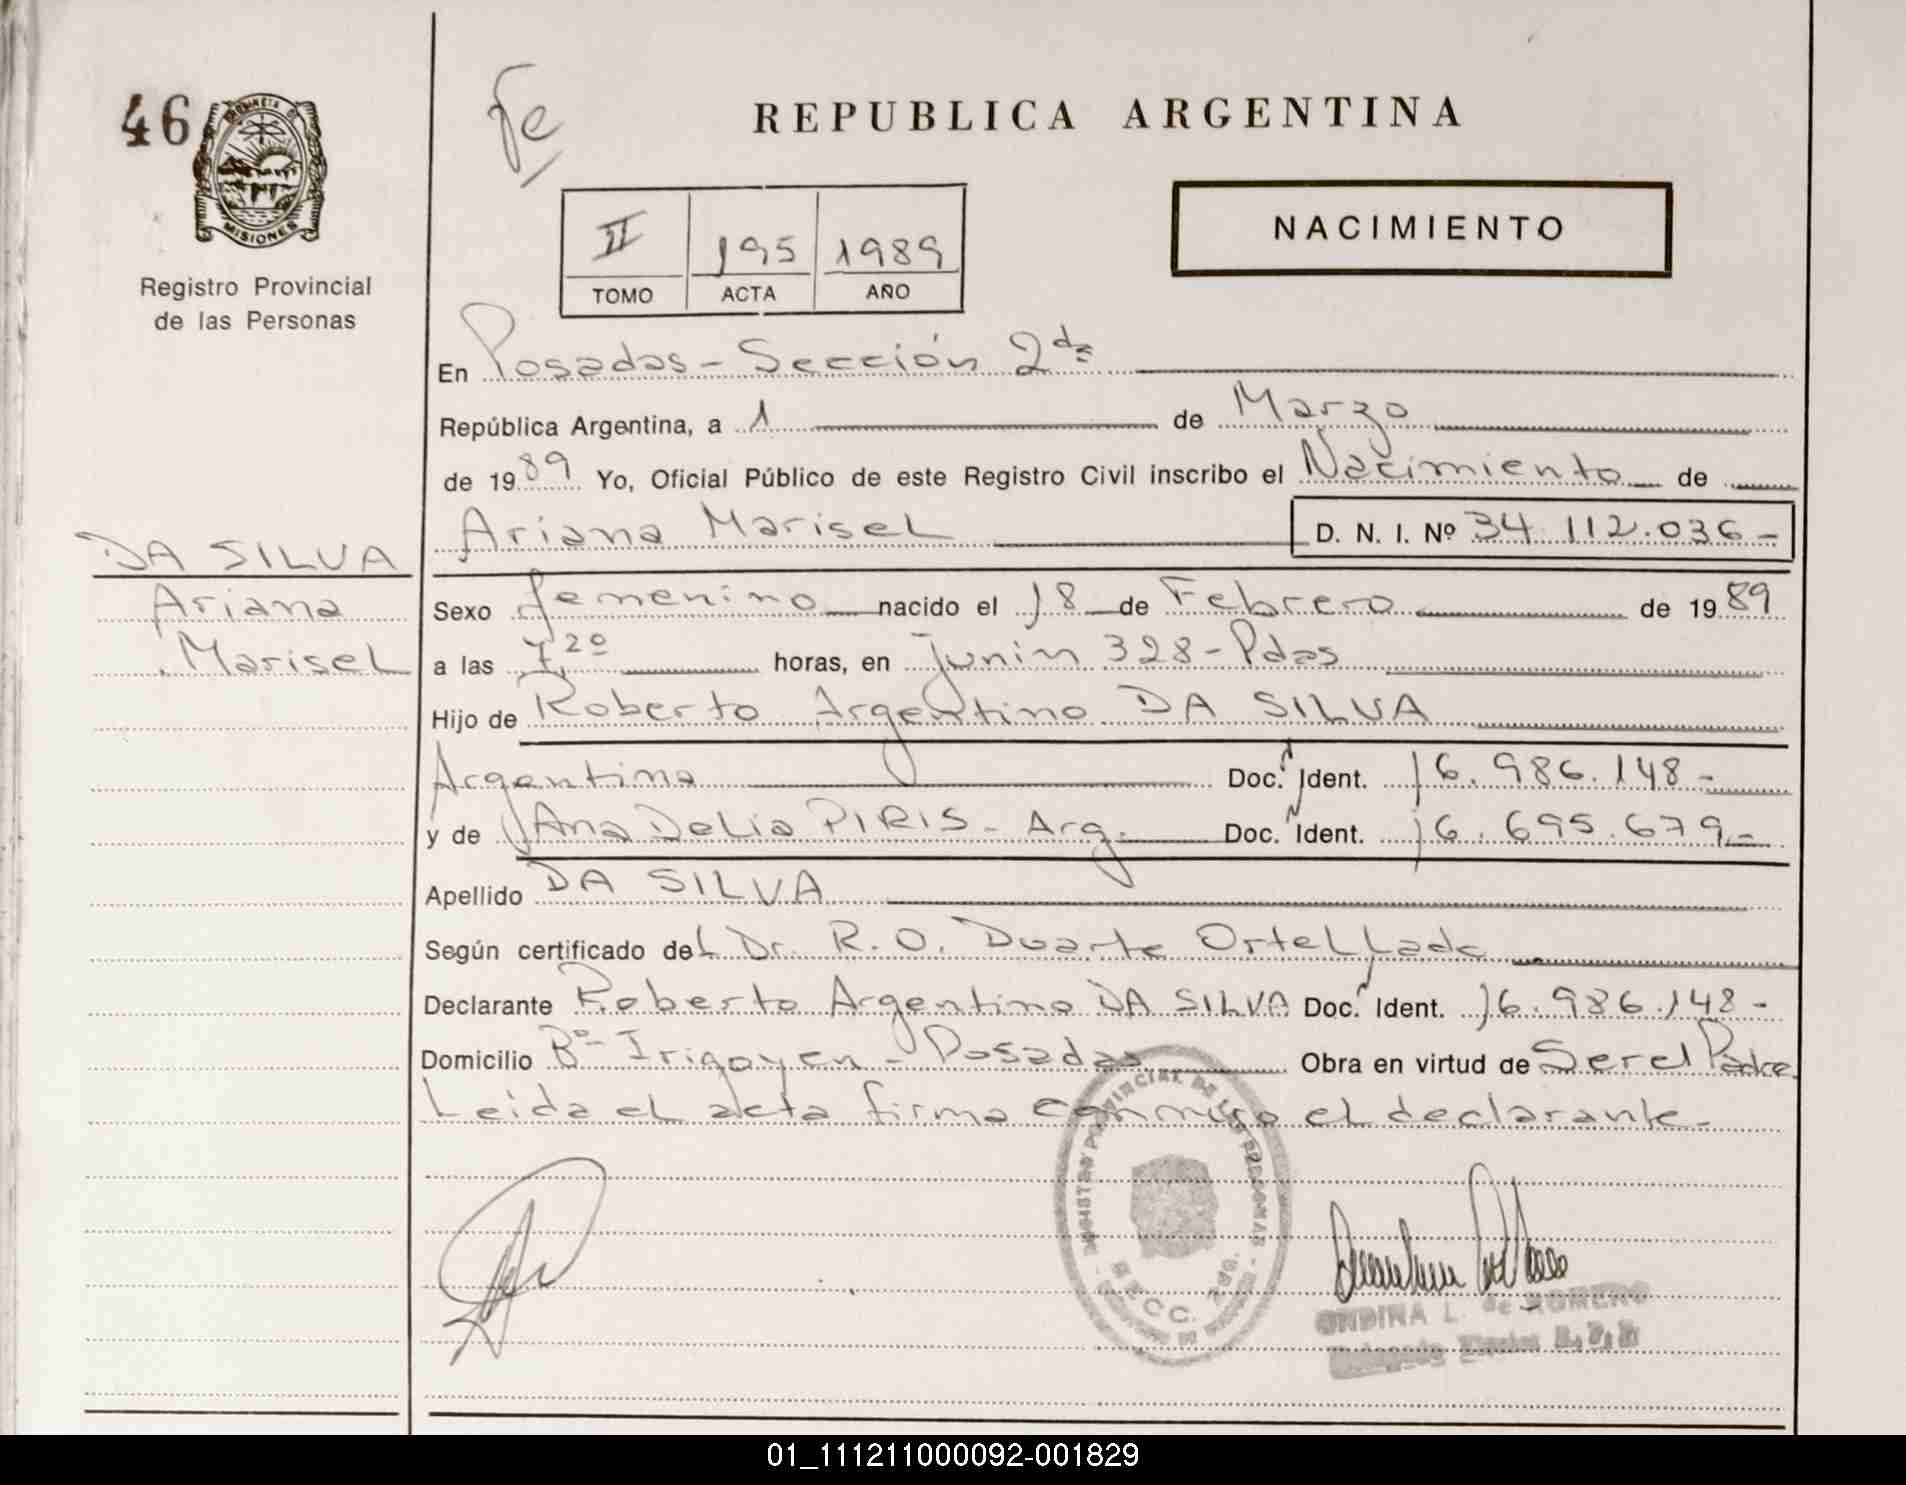 46
MISIONES
Registro Provincial
de las Personas
Fe
REPUBLICA ARGENTINA
NACIMIENTO
II 195 1989
TOMO ACTA AÑO
En Posadas - Sección 2da
República Argentina, a 1 de Marzo
de 1989 Yo, Oficial Público de este Registro Civil inscribo el Nacimiento de
Ariana Marisel D. N. I. Nº 34.112.036-
DA SILVA
Ariana
Marisel
Sexo femenino nacido el 18 de Febrero de 1989
a las 7,20 horas, en Junin 328 - Pdas
Hijo de Roberto Argentino DA SILVA
Argentina Doc. Ident. 16.986.148-
y de Ana Delia PIRIS - Arg. Doc. Ident. 16.695.679-
Apellido DA SILVA
Según certificado del Dr. R. O. Duarte Ortellado
Declarante Roberto Argentino DA SILVA Doc. Ident. 16.986.148-
Domicilio Bº Irigoyen - Posadas Obra en virtud de Ser el Padre
Leida el acta firma conmigo el declarante.
REGISTRO PROVINCIAL DE LAS PERSONAS
SECC. 2da.
ONDINA L. de ROMERO
01_111211000092-001829